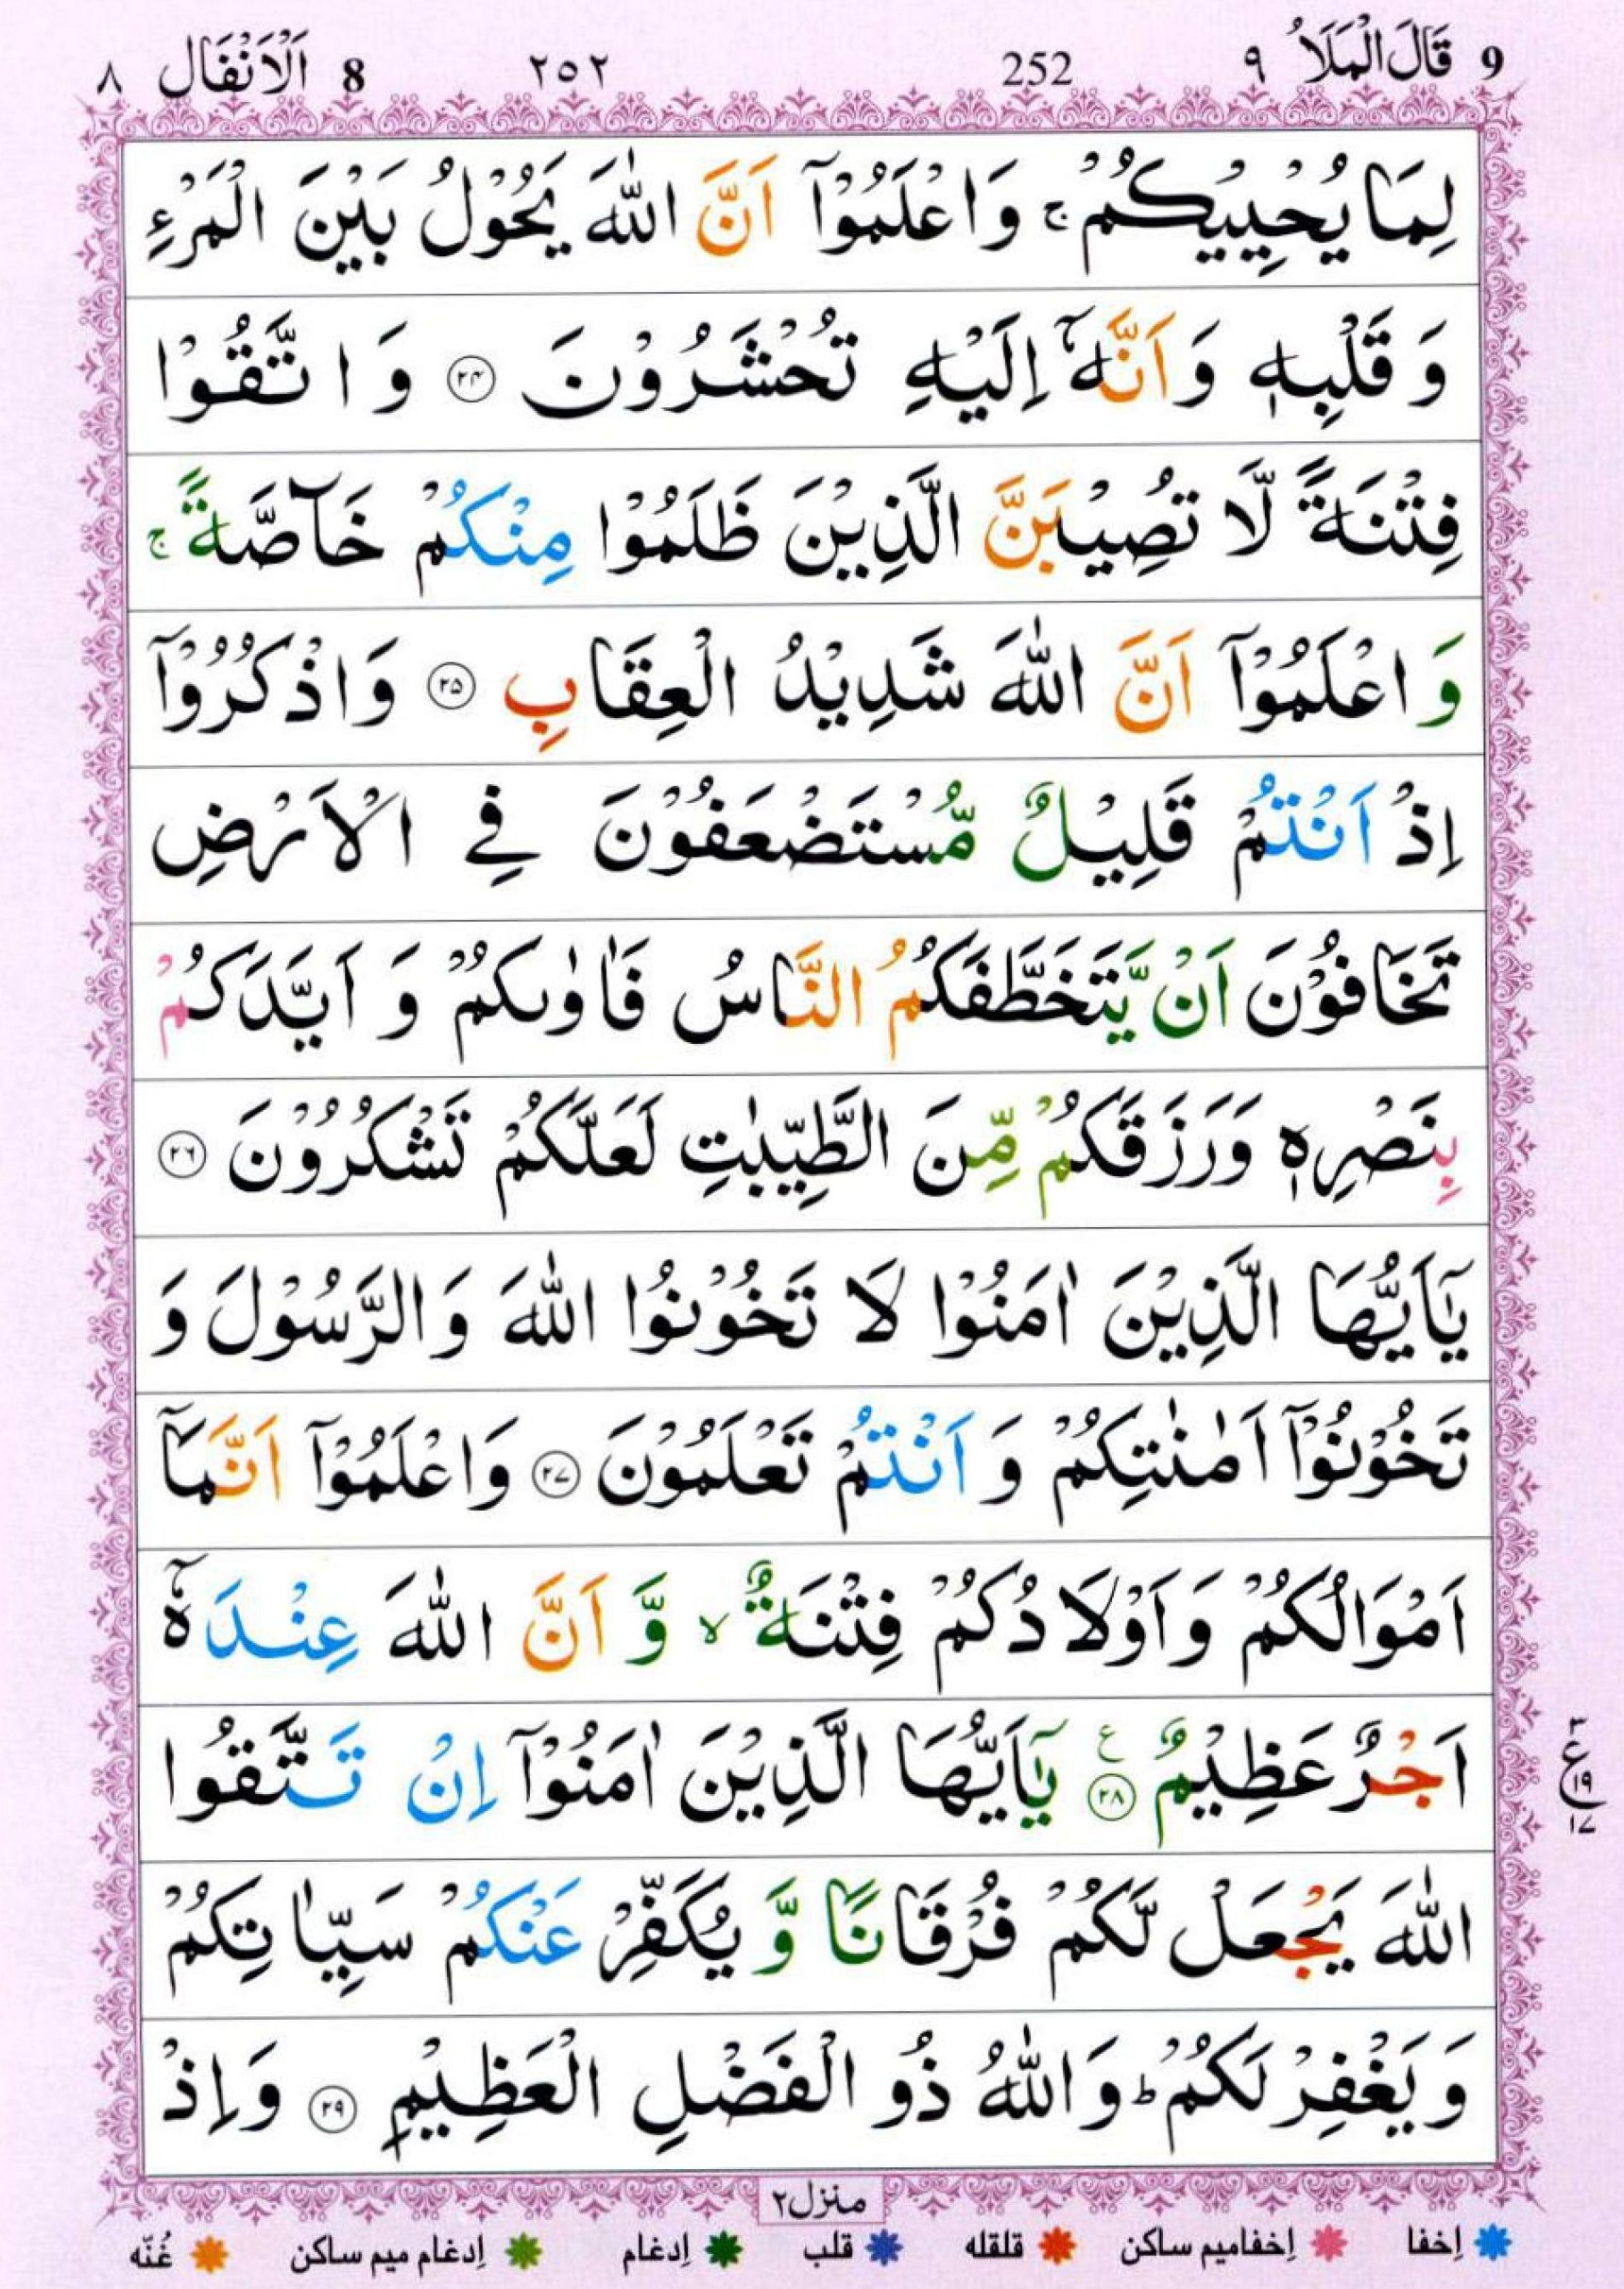 9 قَالَ الْمَلَاُ ٩ 252 ٢٥٢ 8 اَلْاَنْفَال ٨
لِمَا يُحْيِيْكُمْ ۚ وَاعْلَمُوْۤا اَنَّ اللّٰهَ يَحُوْلُ بَيْنَ الْمَرْءِ
وَ قَلْبِهٖ وَ اَنَّهٗۤ اِلَيْهِ تُحْشَرُوْنَ ﴿۲۴﴾ وَ اتَّقُوْا
فِتْنَةً لَّا تُصِيْبَنَّ الَّذِيْنَ ظَلَمُوْا مِنْكُمْ خَآصَّةً ۚ
وَ اعْلَمُوْۤا اَنَّ اللّٰهَ شَدِيْدُ الْعِقَابِ ﴿۲۵﴾ وَاذْكُرُوْۤا
اِذْ اَنْتُمْ قَلِيْلٌ مُّسْتَضْعَفُوْنَ فِي الْاَرْضِ
تَخَافُوْنَ اَنْ يَّتَخَطَّفَكُمُ النَّاسُ فَاٰوٰىكُمْ وَ اَيَّدَكُمْ
بِنَصْرِهٖ وَرَزَقَكُمْ مِّنَ الطَّيِّبٰتِ لَعَلَّكُمْ تَشْكُرُوْنَ ﴿۲۶﴾
يٰۤاَيُّهَا الَّذِيْنَ اٰمَنُوْا لَا تَخُوْنُوا اللّٰهَ وَالرَّسُوْلَ وَ
تَخُوْنُوْۤا اَمٰنٰتِكُمْ وَ اَنْتُمْ تَعْلَمُوْنَ ﴿۲۷﴾ وَاعْلَمُوْۤا اَنَّمَاۤ
اَمْوَالُكُمْ وَاَوْلَادُكُمْ فِتْنَةٌ ۙ وَّ اَنَّ اللّٰهَ عِنْدَهٗۤ
اَجْرٌ عَظِيْمٌ ﴿۲۸﴾ ع يٰۤاَيُّهَا الَّذِيْنَ اٰمَنُوْۤا اِنْ تَتَّقُوا
۳ ع ۱۹ ۱۷
اللّٰهَ يَجْعَلْ لَّكُمْ فُرْقَانًا وَّ يُكَفِّرْ عَنْكُمْ سَيِّاٰتِكُمْ
وَيَغْفِرْ لَكُمْ ؕ وَاللّٰهُ ذُو الْفَضْلِ الْعَظِيْمِ ﴿۲۹﴾ وَاِذْ
منزل۲
اِخفا اِخفامیم ساکن قلقله قلب اِدغام اِدغام میم ساکن غُنّه